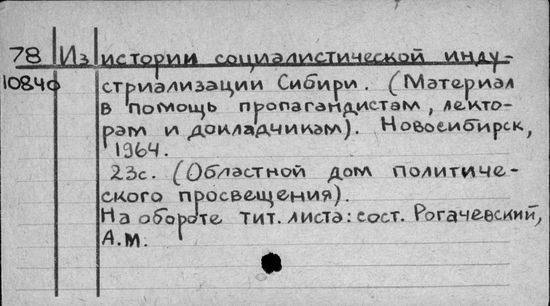 78 Из истории социалистической инду-
10840 стриализации Сибири. (Материал
в помощь пропагандистам, лекто-
рам и докладчикам). Новосибирск,
1964.
23с. (Областной дом политиче-
ского просвещения).
На обороте тит. листа: сост. Рогачевский,
А.М.